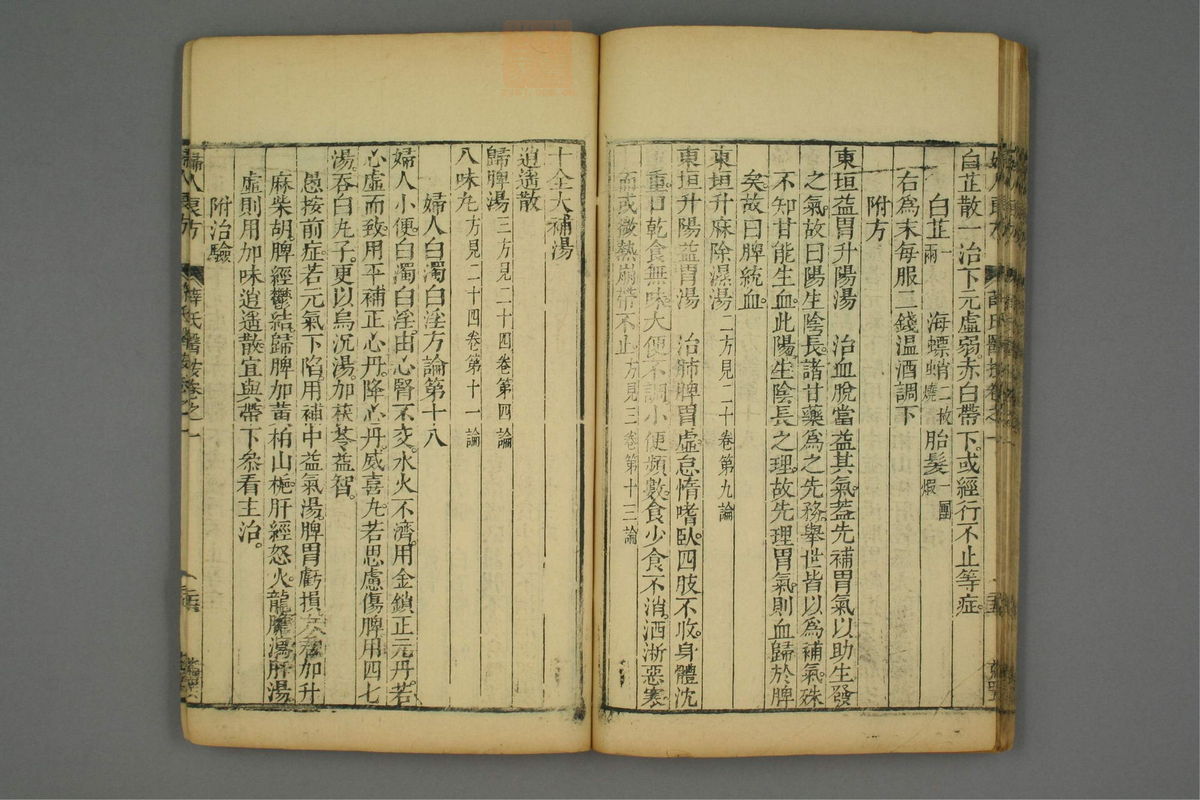 白芷散一治下元虛弱赤白帶下。或經行不止等症。
白芷一兩 海螵蛸二枚燒 胎髮一團煅
右爲末每服二錢温酒調下
附方
東垣益胃升陽湯 治血脫當益其氣。葢先補胃氣以助生發
之氣。故曰陽生陰長。諸甘藥爲之先務。舉世皆以爲補氣。殊
不知甘能生血。此陽生陰長之理。故先理胃氣則血歸於脾
矣。故曰脾統血。
東垣升麻除濕湯二方見二十卷第九論
東垣升陽益胃湯 治肺脾胃虛。怠惰嗜臥。四肢不收。身體沈
重。口乾食無味。大便不調。小便頻數。食少食不消。洒淅惡寒
而或微熱崩帶不止方見三卷第十三論
十全大補湯
逍遥散
歸脾湯三方見二十四卷第四論
八味丸方見二十四卷第十一論
婦人白濁白淫方論第十八
婦人小便白濁白淫由心腎不交。水火不濟。用金鎖正元丹。若
心虛而致。用平補正心丹。降心丹。威喜丸。若思慮傷脾用四七
湯。吞白丸子。更以烏沉湯加茯苓益智。
愚按前症。若元氣下陷。用補中益氣湯。脾胃虧損。六君加升
麻柴胡。脾經鬱結歸脾加黃柏山梔。肝經怒火。龍膽瀉肝湯
虛則用加味逍遥散宜與帶下叅看主治。
附治驗
婦人良方
薛氏醫按卷之一